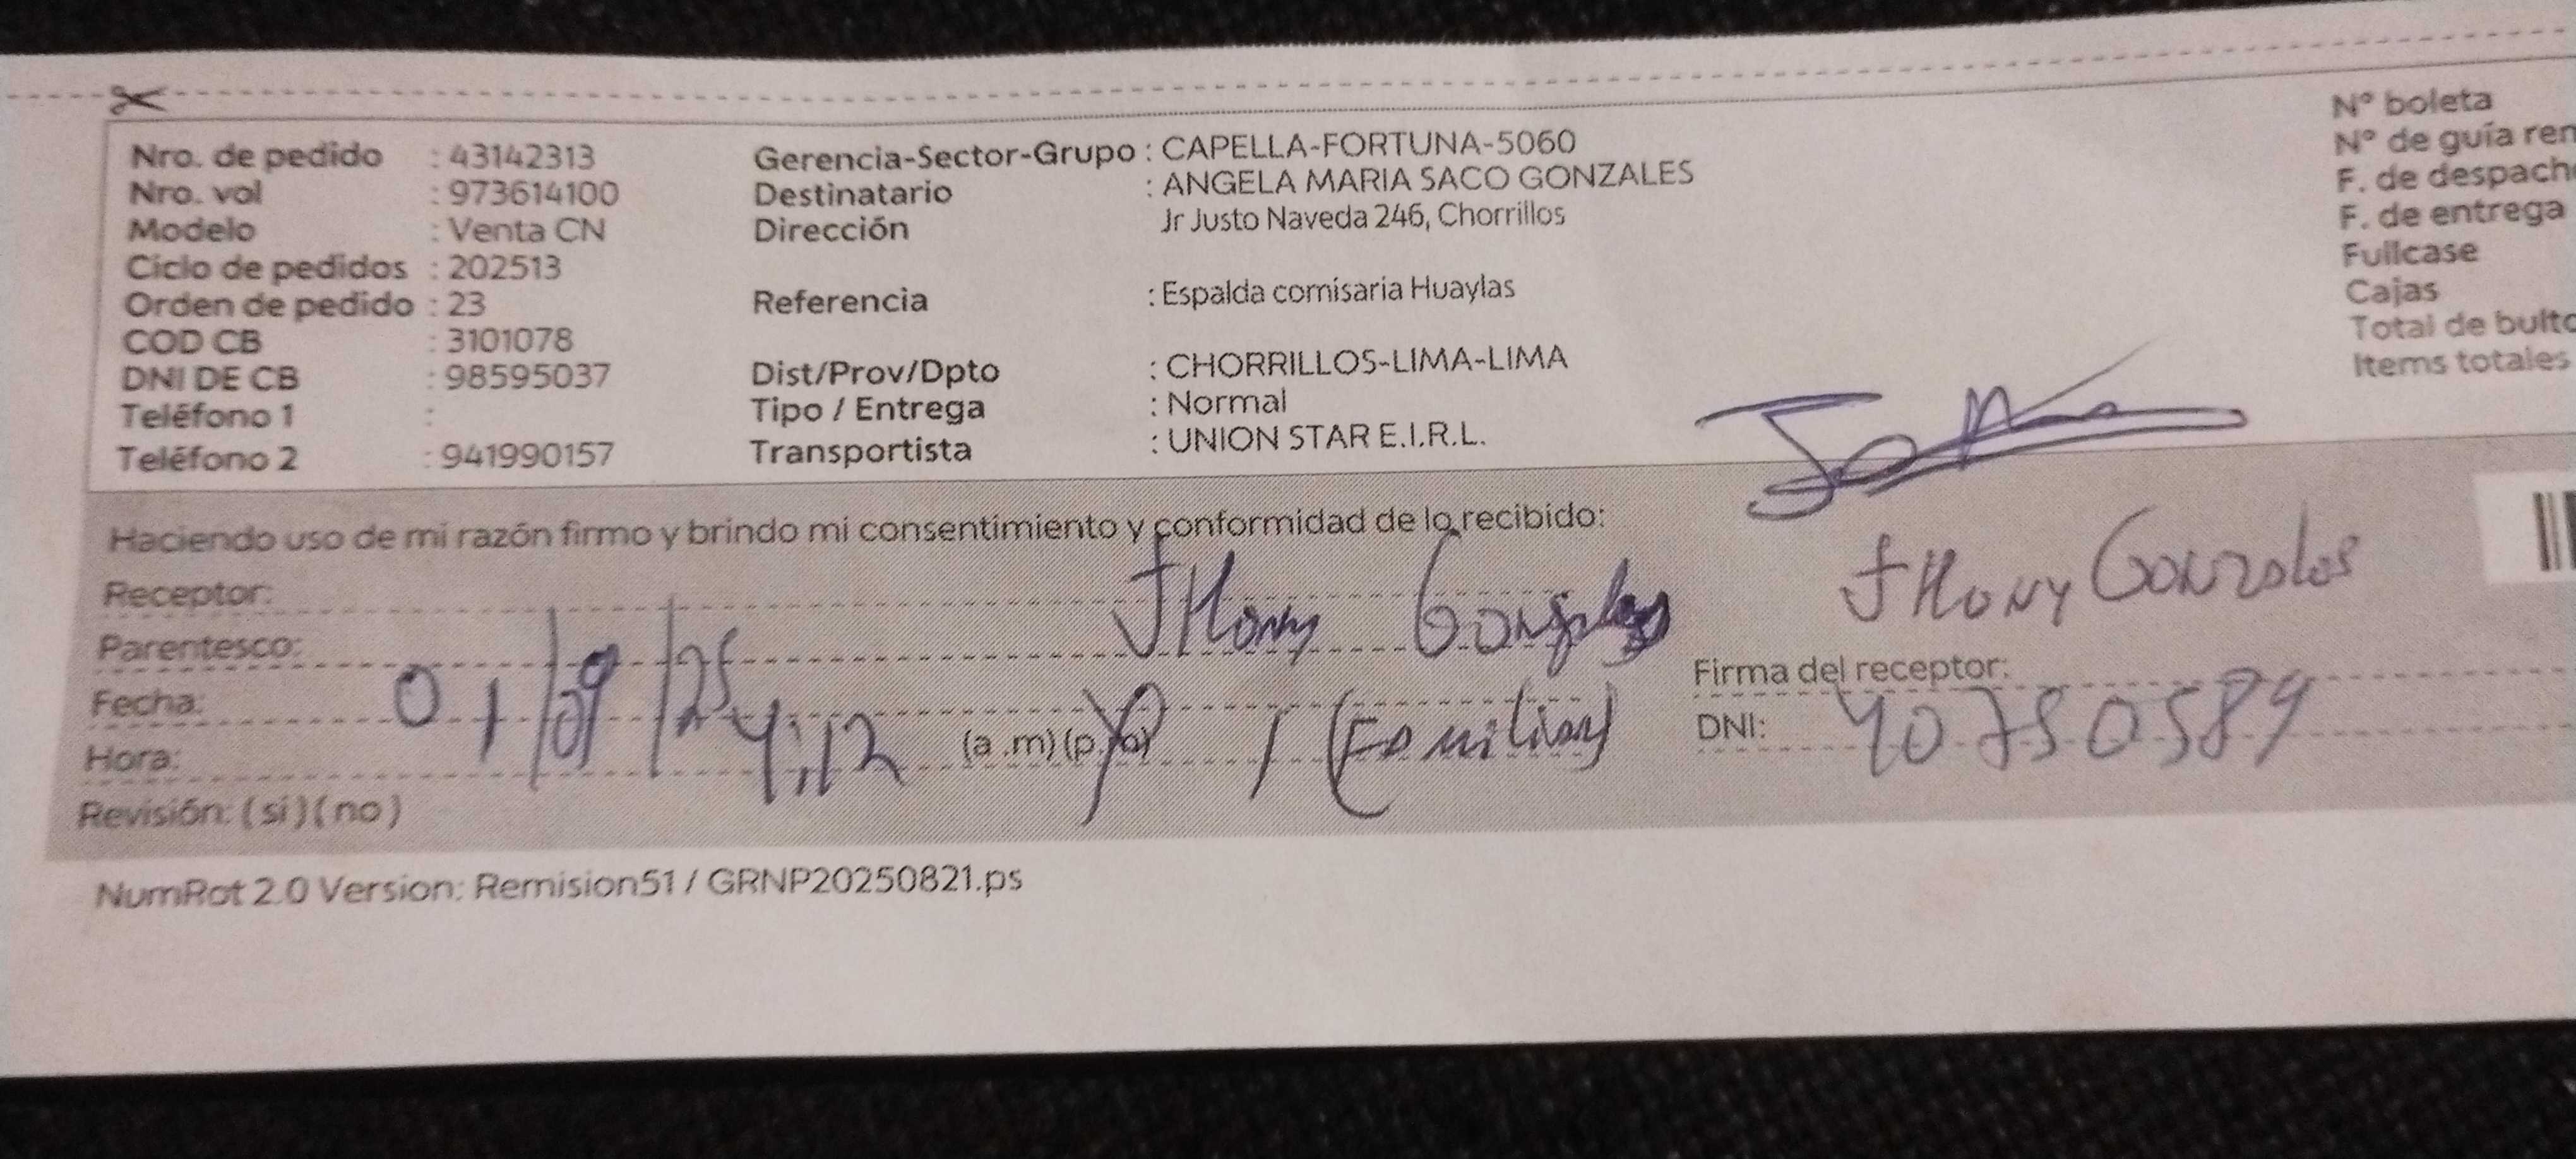 Nro. de pedido : 43142313
Nro. vol : 973614100
Modelo : Venta CN
Ciclo de pedidos : 202513
Orden de pedido : 23
COD CB : 3101078
DNI DE CB : 98595037
Teléfono 1 :
Teléfono 2 : 941990157
Gerencia-Sector-Grupo : CAPELLA-FORTUNA-5060
Destinatario : ANGELA MARIA SACO GONZALES
Dirección Jr Justo Naveda 246, Chorrillos
Referencia : Espalda comisaria Huaylas
Dist/Prov/Dpto : CHORRILLOS-LIMA-LIMA
Tipo / Entrega : Normal
Transportista : UNION STAR E.I.R.L.
N° boleta
N° de guía rem
F. de despach
F. de entrega
Fullcase
Cajas
Total de bulto
Items totales
Haciendo uso de mi razón firmo y brindo mi consentimiento y conformidad de lo recibido:
Receptor: JHony Gonzales
Parentesco:
Fecha: 01/09/25
Hora: 4:12 (a.m)(p.m) (Familiar)
Revisión: (si)(no)
JHony Gonzales
Firma del receptor:
DNI: 40750589
NumRot 2.0 Version: Remision51 / GRNP20250821.ps